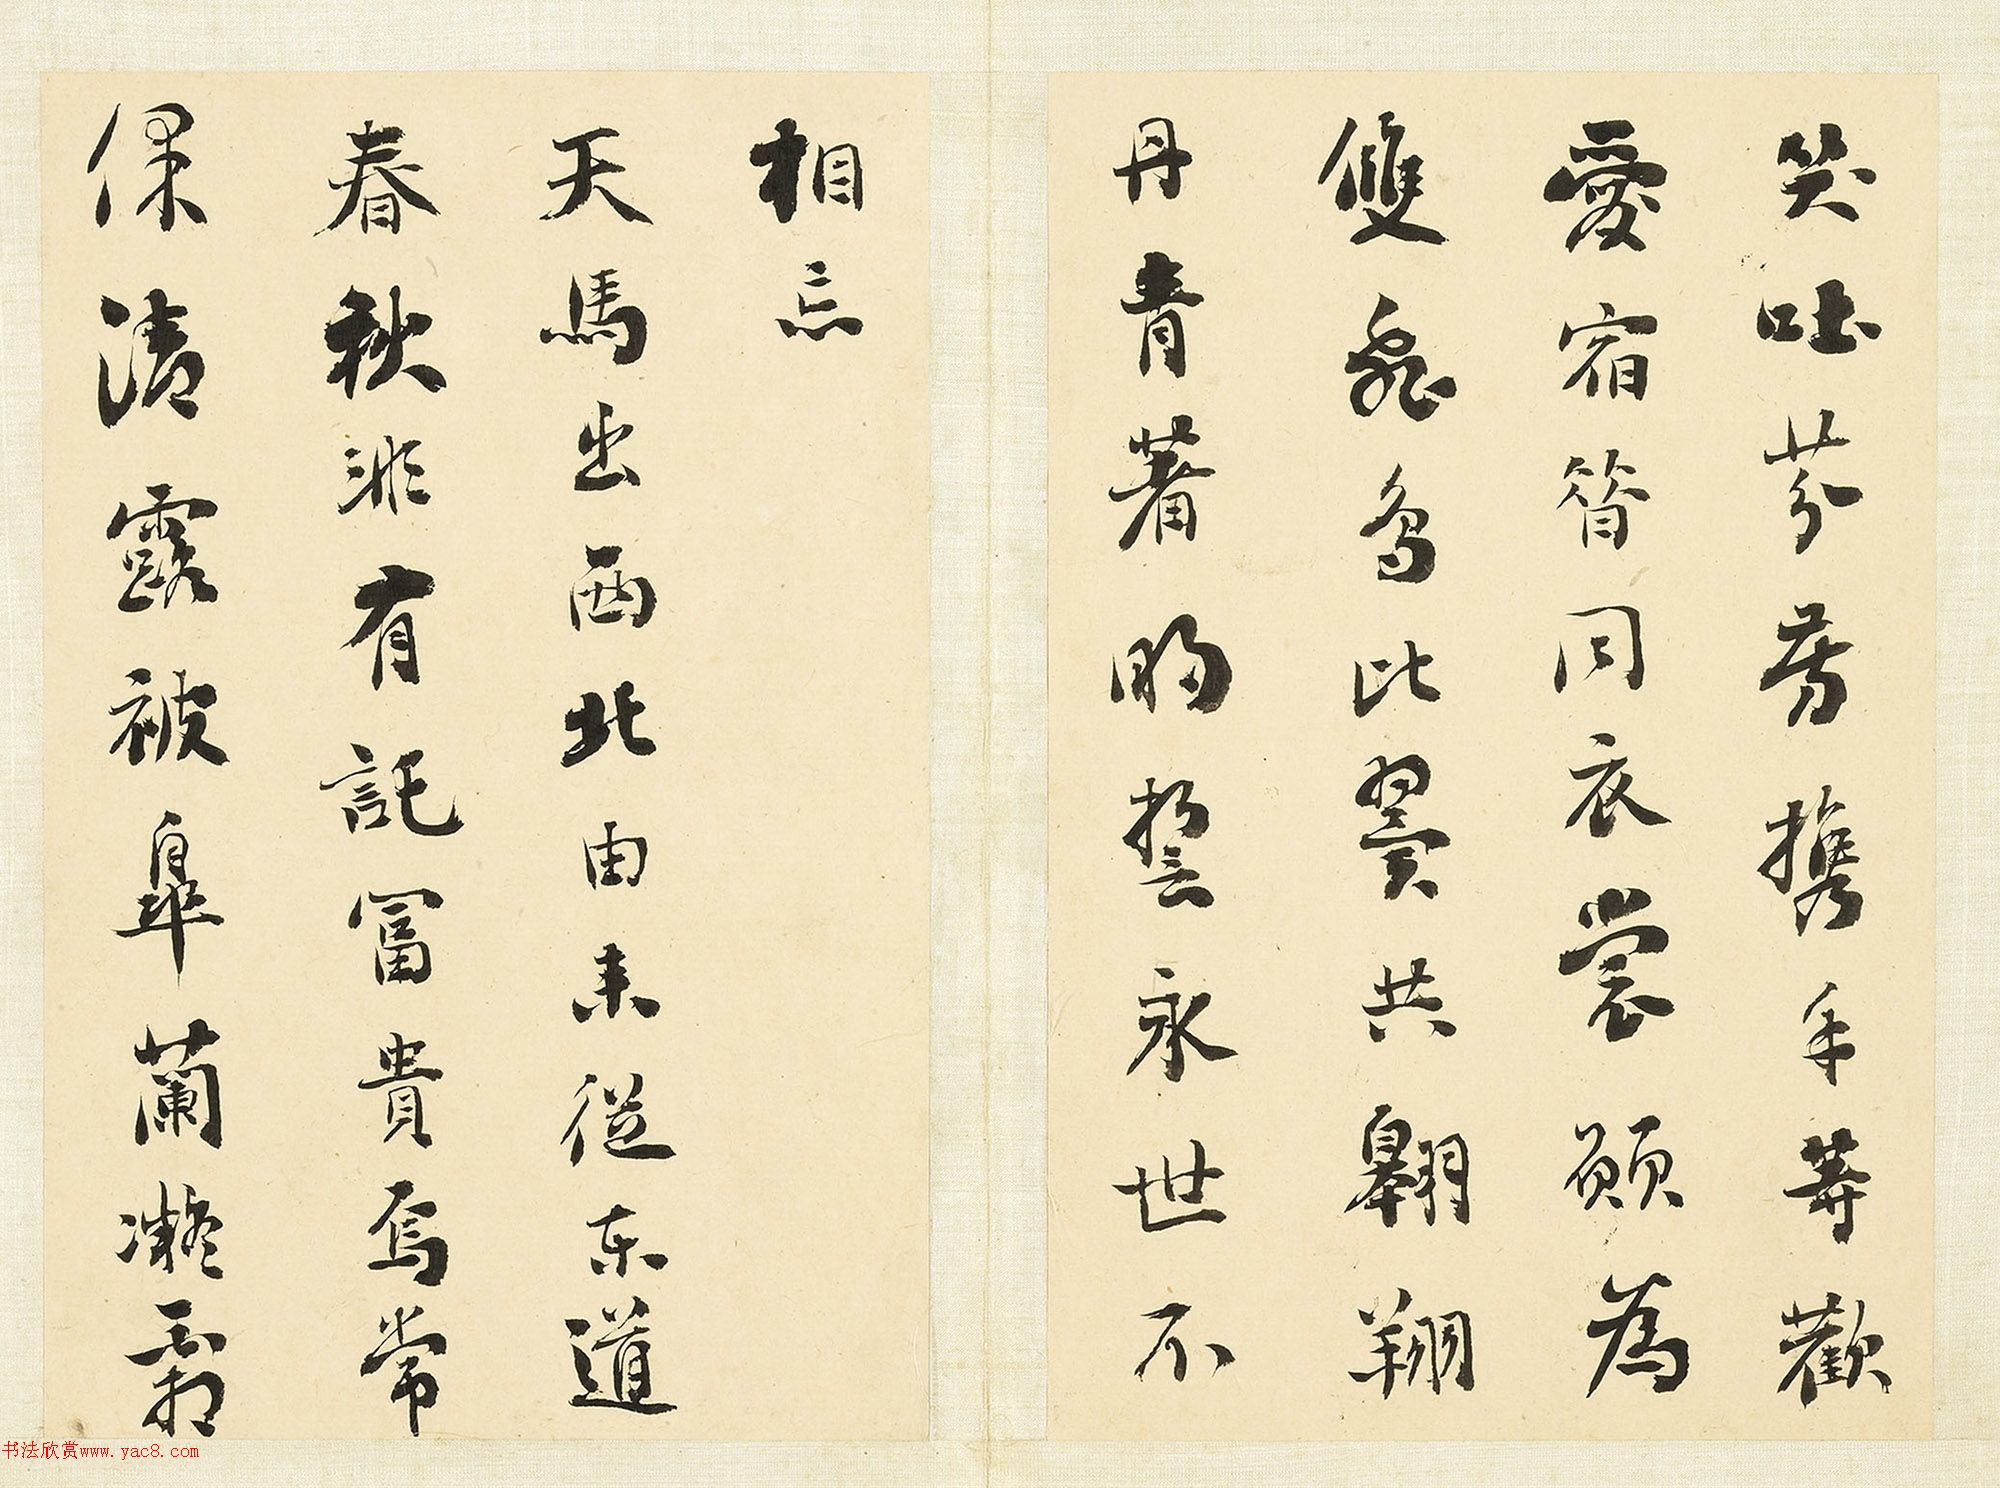 笑吐芬芳攜手等歡
愛宿昔同衣裳願為
雙飛鳥比翼共翱翔
丹青著明誓永世不
相忘
天馬出西北由來從東道
春秋非有託富貴焉常
保清露被皋蘭凝霜
书法欣赏www.yac8.com